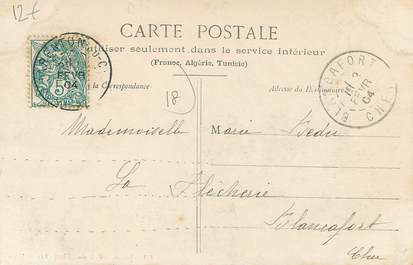 12 €
CARTE POSTALE
utiliser seulement dans le service intérieur
(France, Algérie, Tunisie)
la Correspondance
Adresse du Destinataire
18
FEVR
04
5
BLANCAFORT
FEVR
04
CHER
Mademoiselle Marie
La Flècherie
Blancafort
Cher